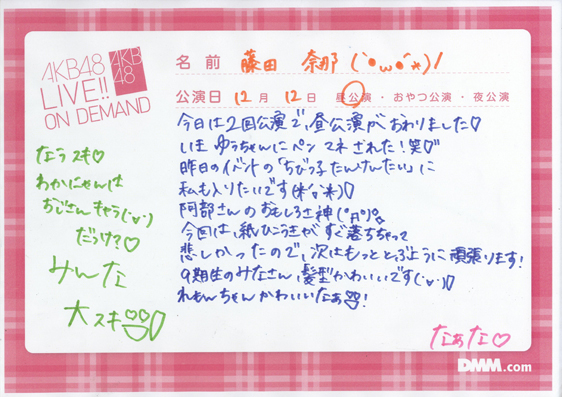 AKB48
LIVE!!
ON DEMAND
AKB
48
名前 藤田 奈那(`●ω●´*)/
公演日 12月 12日 昼公演・おやつ公演・夜公演
今日は2回公演で、昼公演がおわりました♡
いま ゆうちゃんにペン マネされた!笑♡"
昨日のイベントの「ちびっ子たんけんたい」に
私も入りたいです
阿部さんのおもしろさ神
今回は、紙ひこうきがすぐ落ちちゃって
悲しかったので、次はもっととぶように頑張ります!
9期生のみなさん、髪型かわいいです(・v・)♡
れもんちゃんかわいいなぁ!
なぅスキ♡
わかにゃんは
おじさんキャラ(・v・)
だっけ?♡
みんな
大スキ
なぁな♡
DMM.com